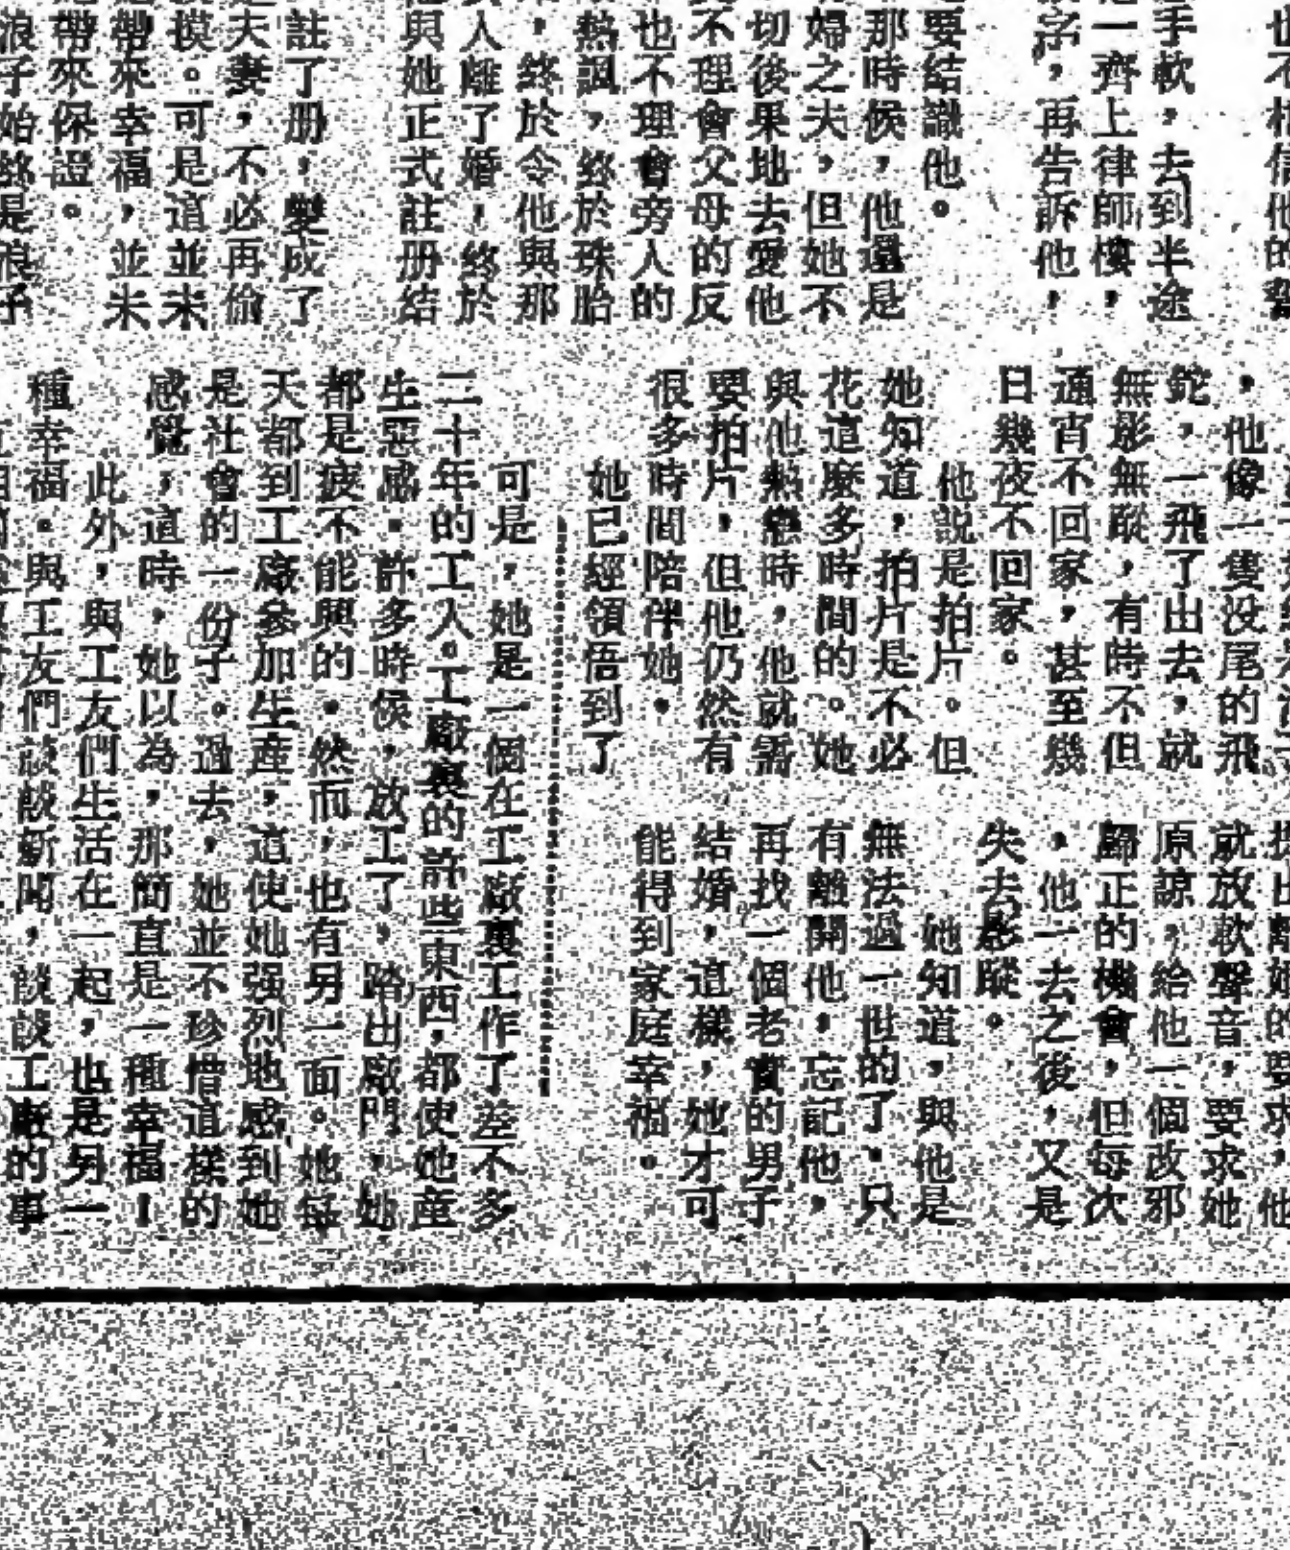 也不相信他的
手軟，去到半途
一齊上律師樓，
字，再告訴他，
要結識他。
那時候，他還是
婦之夫，但她不
切後果地去愛他
不理會父母的反
也不理會旁人的
熱諷，終於珠胎
，終於令他與那
人離了婚，終於
與她正式註册結
註了册，變成了
夫妻，不必再偷
摸。可是這並未
帶來幸福，並未
帶來保證。
浪子始終是浪子
，他像一隻没尾的飛
鉈，一飛了出去，就
無影無蹤，有時不但
通宵不回家，甚至幾
日幾夜不回家。
他説是拍片。但
她知道，拍片是不必
花這麼多時間的。她
與他熱戀時，他就需
要拍片，但他仍然有
很多時間陪伴她。
她已經領悟到了
提出離婚的要求，他
就放軟聲音，要求她
原諒，給他一個改邪
歸正的機會，但每次
，他一去之後，又是
失去影蹤。
她知道，與他是
無法過一世的了。只
有離開他，忘記他，
再找一個老實的男子
結婚，這樣，她才可
能得到家庭幸福。
可是，她是一個在工廠裏工作了差不多
二十年的工人。工廠裏的許些東西，都使她産
生惡感。許多時候，放工了，踏出廠門，她
都是疲不能興的。然而，也有另一面。她每
天都到工廠參加生産，這使她强烈地感到她
是社會的一份子。過去，她並不珍惜這樣的
感覺，這時，她以為，那簡直是一種幸福！
此外，與工友們生活在一起，也是另一
種幸福。與工友們談談新聞，談談工廠的事